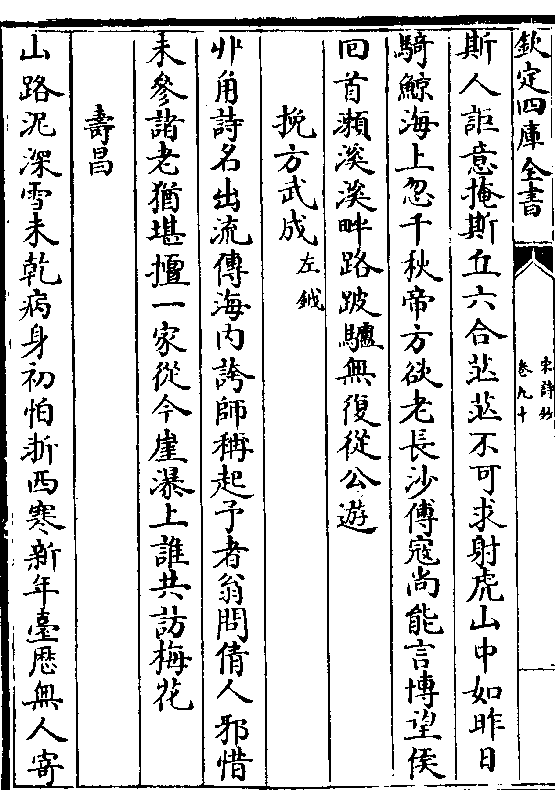 欽定四庫全書
宋詩鈔
卷九十
斯人詎意掩斯丘六合茫茫不可求射虎山中如昨日
騎鯨海上忽千秋帝方欲老長沙傅寇尚能言博望侯
回首瀨溪溪畔路跛驢無復從公遊
挽方武成左鉞
丱角詩名出流傳海内誇師稱起予者翁問倩人邪惜
未參諸老猶堪擅一家從今崖瀑上誰共訪梅花
壽昌
山路泥深雪未乾病身初怕浙西寒新年臺歴無人寄